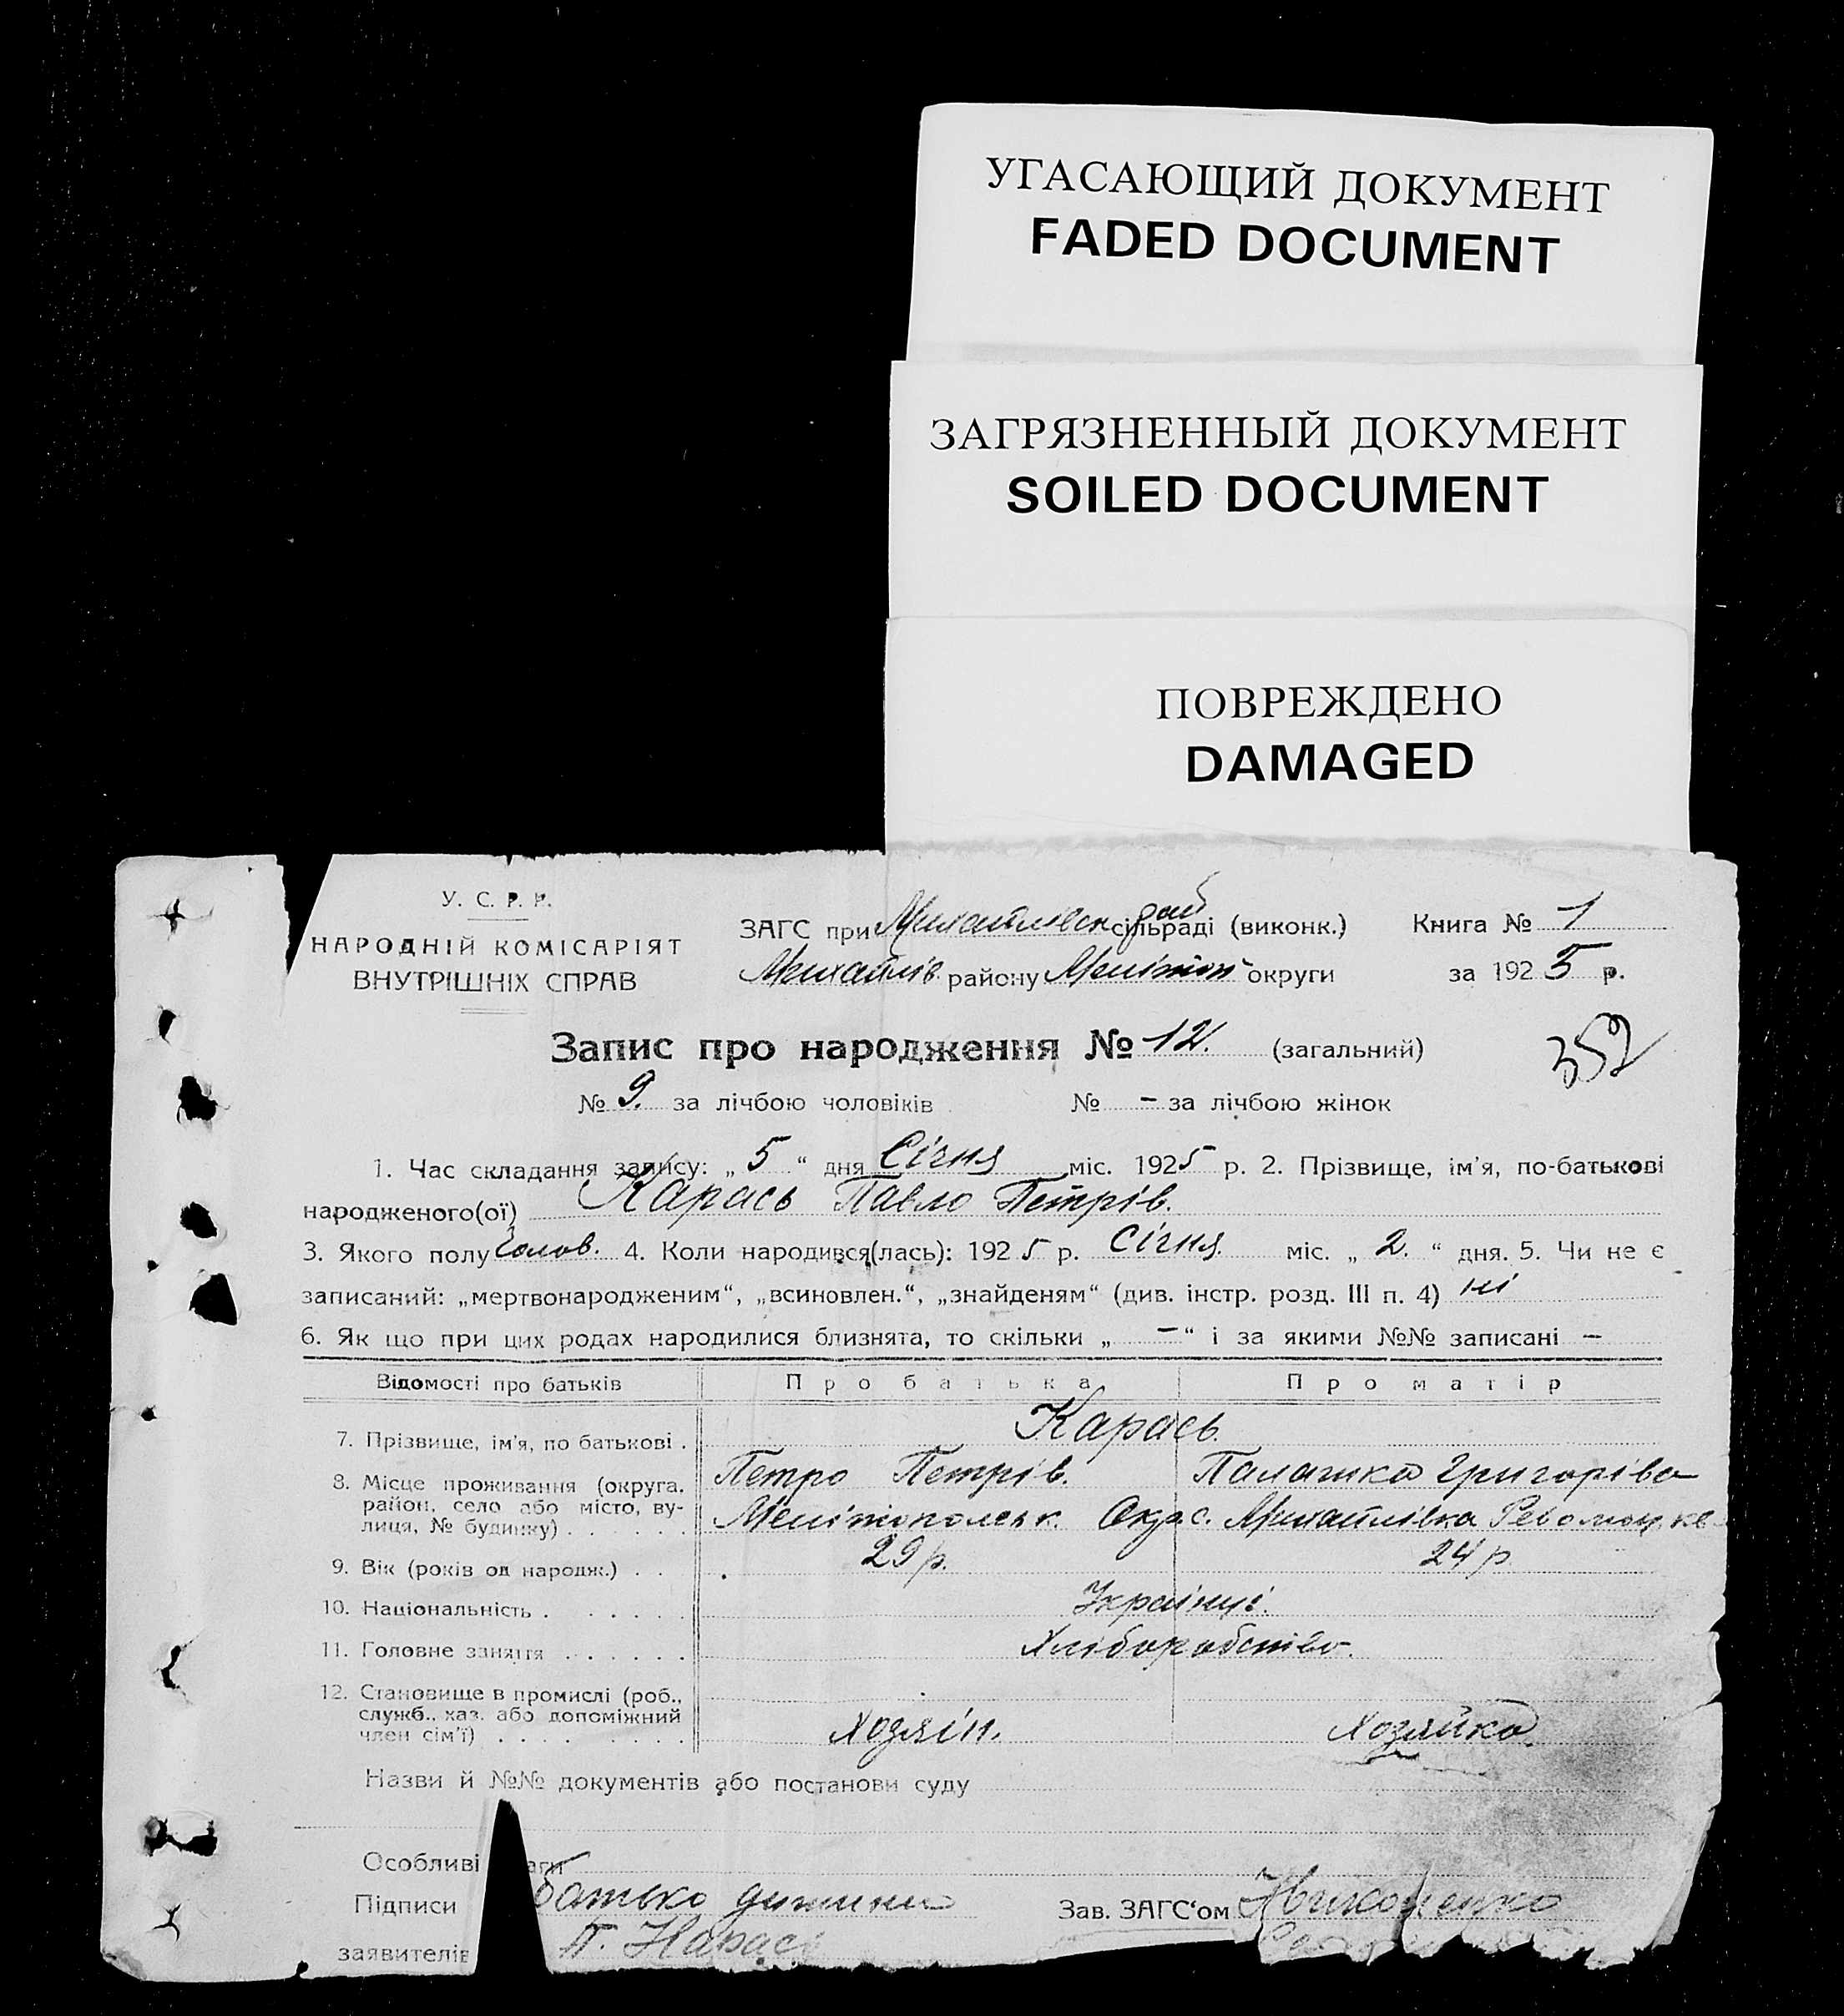 УГАСАЮЩИЙ ДОКУМЕНТ
FADED DOCUMENT
ЗАГРЯЗНЕННЫЙ ДОКУМЕНТ
SOILED DOCUMENT
ПОВРЕЖДЕНО
DAMAGED
У. С. Р. Р.
НАРОДНІЙ КОМІСАРІЯТ
ВНУТРІШНІХ СПРАВ
ЗАГС при Михайлівськ рай сільраді (виконк.) Книга № 1
Михайлів. району Мелітоп округи за 1925 р.
Запис про народження № 12. (загальний)
352
№ 9. за лічбою чоловіків № — за лічбою жінок
1. Час складання запису: „ 5 “ дня Січня міс. 1925 р. 2. Прізвище, ім'я, по-батькові
народженого(ої) Карась Павло Петрів.
3. Якого полу чолов. 4. Коли народився(лась): 1925 р. Січня. міс. „ 2. “ дня. 5. Чи не є
записаний: „мертвонародженим“, „всиновлен.“, „знайденям“ (див. інстр. розд. III п. 4) ні
6. Як що при цих родах народилися близнята, то скільки „ — “ і за якими №№ записані —
Відомості про батьків Про батька Про матір
7. Прізвище, ім'я, по батькові . Карась.
Петро Петрів. Палашка Григорівa
8. Місце проживання (округа,
район, село або місто, ву-
лиця, № будинку) . . . . . . Мелітопольськ. Окр. с. Михайлівка
9. Вік (років од народж.) . . 29 р. 24 р
10. Національність . . . . . . Українці.
11. Головне заняття . . . . . . Хліборобство.
12. Становище в промислі (роб.,
служб., хаз. або допоміжний
член сім'ї) . . . . . . . . Хозяїн. Хозяйка.
Назви й №№ документів або постанови суду
Особливі
Підписи батько дитини Зав. ЗАГС'ом
заявителів П. Карась